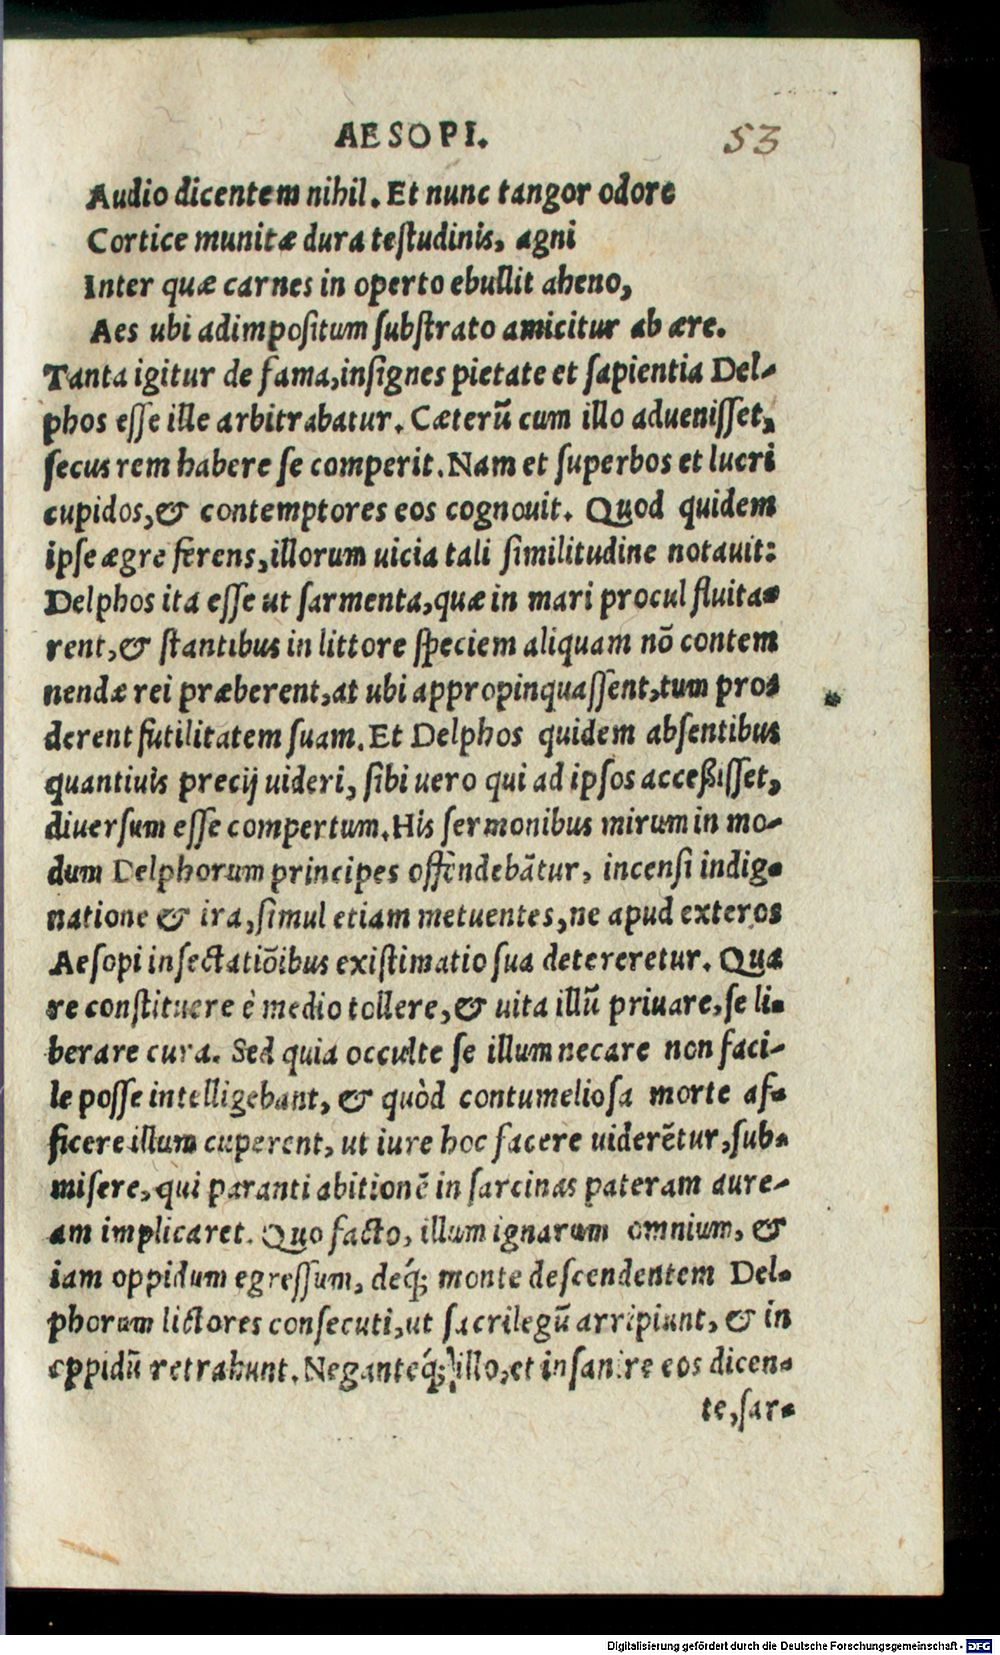 AESOPI.
53
Audio dicentem nihil. Et nunc tangor odore
Cortice munitæ dura testudinis, agni
Inter quæ carnes in operto ebullit aheno,
Aes ubi adimpositum substrato amicitur ab ære.
Tanta igitur de fama, insignes pietate et sapientia Del-
phos esse ille arbitrabatur. Cæterũ cum illo aduenisset,
secus rem habere se comperit. Nam et superbos et lucri
cupidos, & contemptores eos cognouit. Quod quidem
ipse ægre ferens, illorum uicia tali similitudine notauit:
Delphos ita esse ut sarmenta, quæ in mari procul fluita-
rent, & stantibus in littore speciem aliquam nõ contem
nendæ rei præberent, at ubi appropinquassent, tum pro-
derent futilitatem suam. Et Delphos quidem absentibus
quantiuis precij uideri, sibi uero qui ad ipsos acceßisset,
diuersum esse compertum. His sermonibus mirum in mo-
dum Delphorum principes offendebãtur, incensi indig-
natione & ira, simul etiam metuentes, ne apud exteros
Aesopi insectatiõibus existimatio sua detereretur. Qua
re constituere è medio tollere, & uita illũ priuare, se li-
berare cura. Sed quia occulte se illum necare non faci-
le posse intelligebant, & quòd contumeliosa morte af-
ficere illum cuperent, ut iure hoc facere uiderẽtur, sub-
misere, qui paranti abitionẽ in sarcinas pateram aure-
am implicaret. Quo facto, illum ignarum omnium, &
iam oppidum egressum, deq́; monte descendentem Del-
phorum lictores consecuti, ut sacrilegũ arripiunt, & in
oppidũ retrahunt. Neganteq́; illo, et insanire eos dicen-
te, sar-
Digitalisierung gefördert durch die Deutsche Forschungsgemeinschaft - DFG